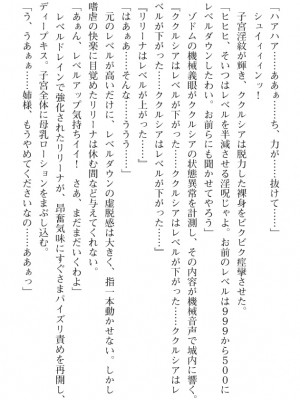 ハアハア……ああぁ……ち、力が……抜けて……」
シュイィィィンッ!
子宮淫紋が輝き、ククルシアは脱力した裸身をビクビク痙攣させた。
「ヒヒヒ、そいつはレベルを半減させる淫呪じゃよ。お前のレベルは999から500に
レベルダウンしたわい。お前らにも聞かせてやろう」
ゾドムの機械義眼がククルシアの状態異常を計測し、その内容が機械音声で城内に響く。
「ククルシアはレベルが下がった……ククルシアはレベルが下がった……ククルシアはレ
ベルが下がった……ククルシアはレベルが下がった……」
「リリーナはレベルが上がった……」
「はああぁ……そんな……ううう……」
元のレベルが高いだけに、レベルダウンの虚脱感は大きく、指一本動かせない。しかし
嗜虐の快楽に目覚めたリリーナは休む間など与えてくれない。
「ああん、レベルアップ気持ちイイ! さあ、まだまだいくわよ」
レベルドレインで強化されたリリーナが、昂奮気味にすぐさまパイズリ責めを再開し、
ディープキス。子宮全体に母乳ローションをまぶし込む。
「う、うあぁぁ……姉様、もうやめてくださいなの……ああぁっ」